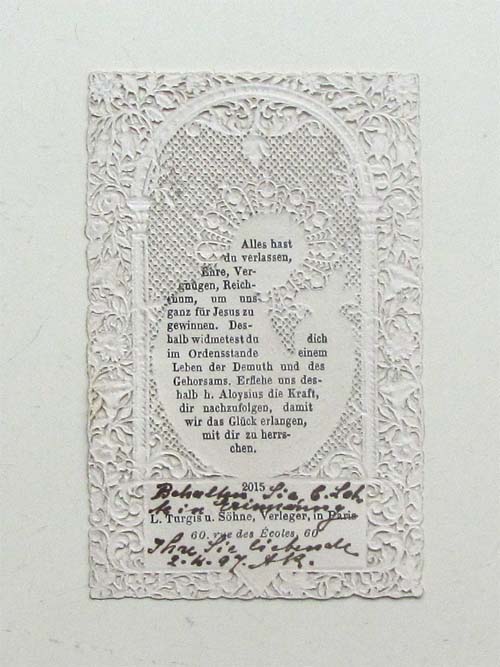 Alles hast
du verlassen,
Ehre, Ver-
gnügen, Reich-
thum, um uns
ganz für Jesus zu
gewinnen. Des-
halb widmetest du dich
im Ordensstande einem
Leben der Demuth und des
Gehorsams. Erflehe uns des-
halb h. Aloysius die Kraft,
dir nachzufolgen, damit
wir das Glück erlangen,
mit dir zu herrs-
chen.
2015
Behalten Sie
in Erinnerung.
L. Turgis u. Söhne, Verleger, in Paris
60. rue des Écoles, 60
Ihre Sie liebende